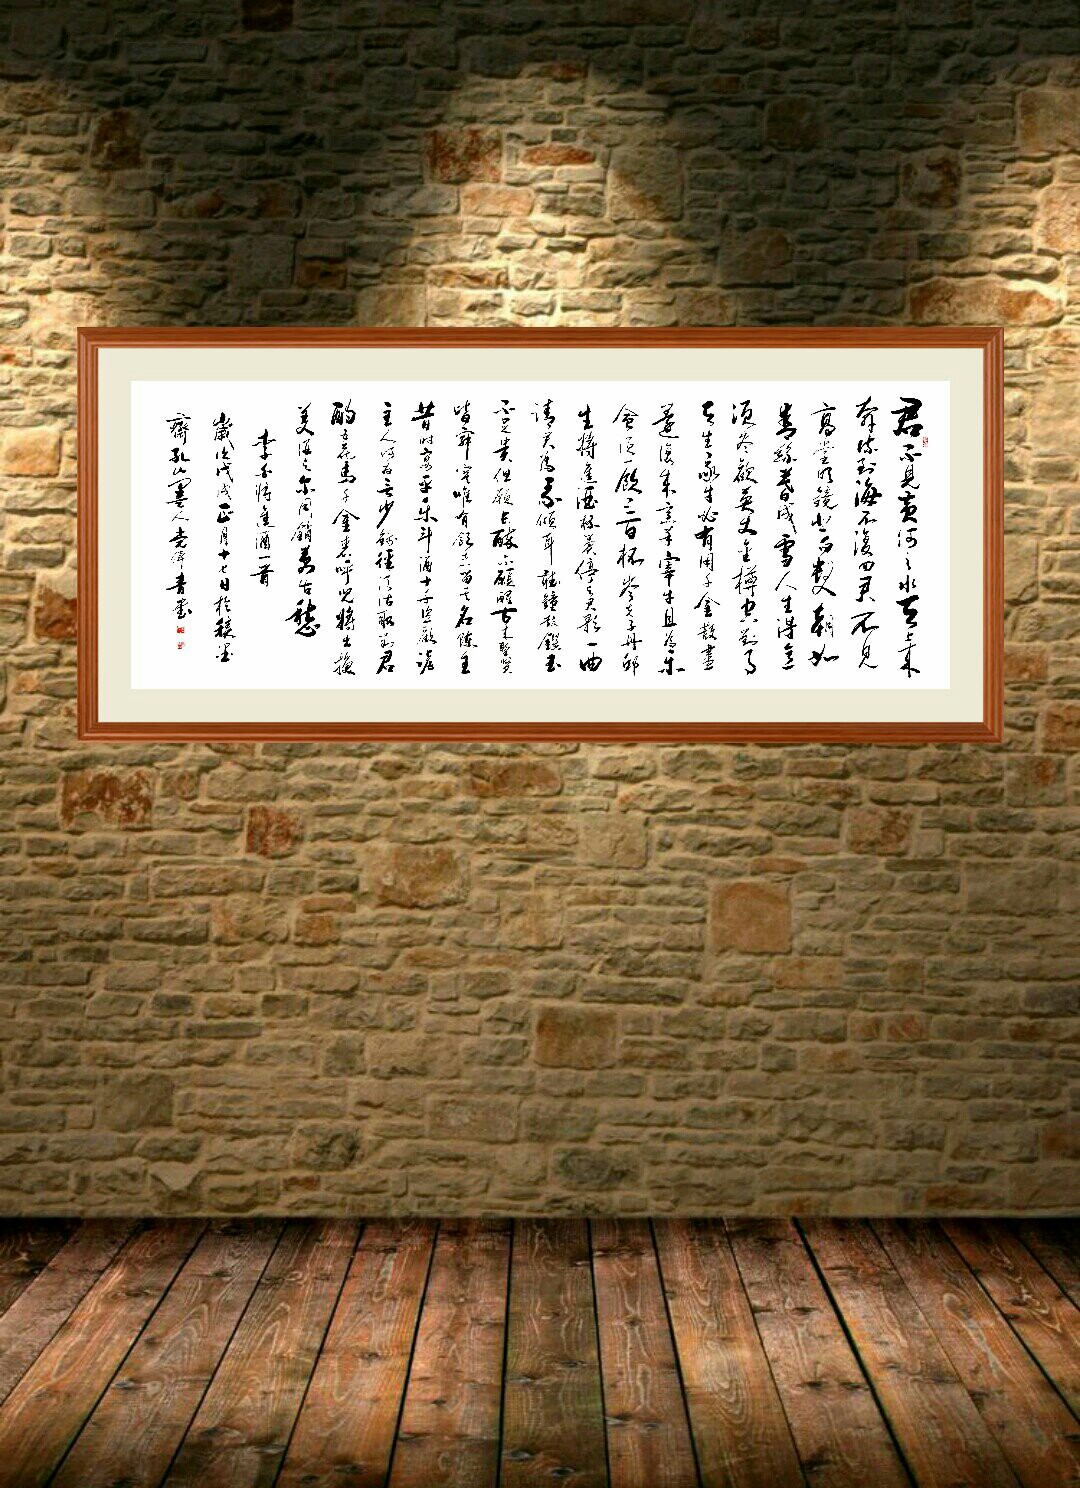 君不見黄河之水天上来
奔流到海不復回君不見
高堂明鏡悲白髮朝如
青絲暮成雪人生得意
須盡歡莫使金樽空對月
天生我材必有用千金散盡
還復来烹羊宰牛且為樂
會須一飲三百杯岑夫子丹邱
生將進酒杯莫停与君歌一曲
請君為我傾耳聽鐘鼓饌玉
不足貴但願長醉不願醒古来聖賢
皆寂寞唯有飲者留其名陳王
昔時宴平樂斗酒十千恣歡謔
主人何為言少錢徑須沽取對君
酌五花馬千金裘呼兒將出換
美酒与尔同銷萬古愁
李白將進酒一首
歲次戊戌正月十七日於積墨
齋孔山墨人